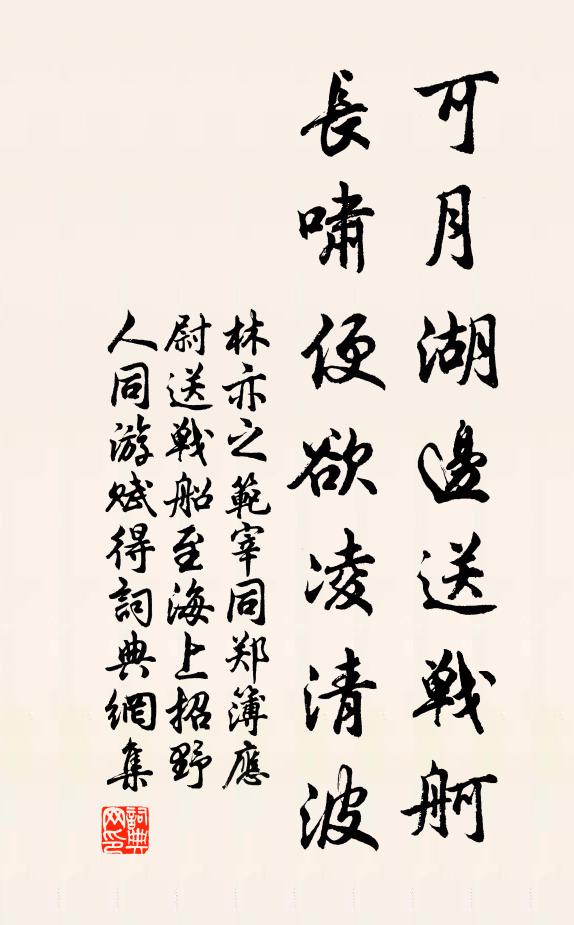 可月湖邊送戰舸
長嘯便欲凌清波
林亦之範宰同郑簿應
尉送戰船至海上招野
人同游賦得詞典網集
詞典網印